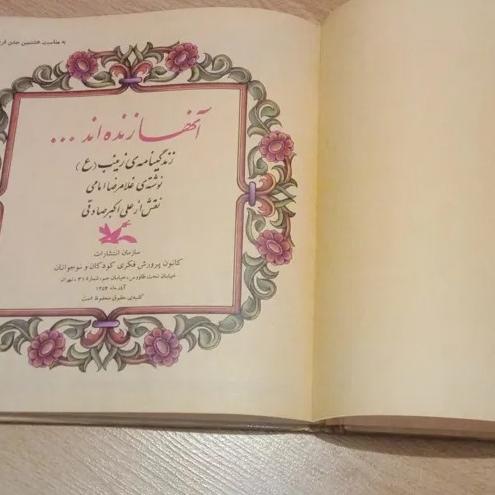 به مناسبت هشتمین جشن
آنها زنده اند ...
زندگینامه‌ی زینب (ع)
نوشته‌ی غلامرضا امامی
نقش از علی اکبر صادقی
سازمان انتشارات
کانون پرورش فکری کودکان و نوجوانان
خیابان تخت طاووس، خیابان جم، شماره ۳۱، تهران
آذر ماه ۱۳۵۴
کلیه‌ی حقوق محفوظ است